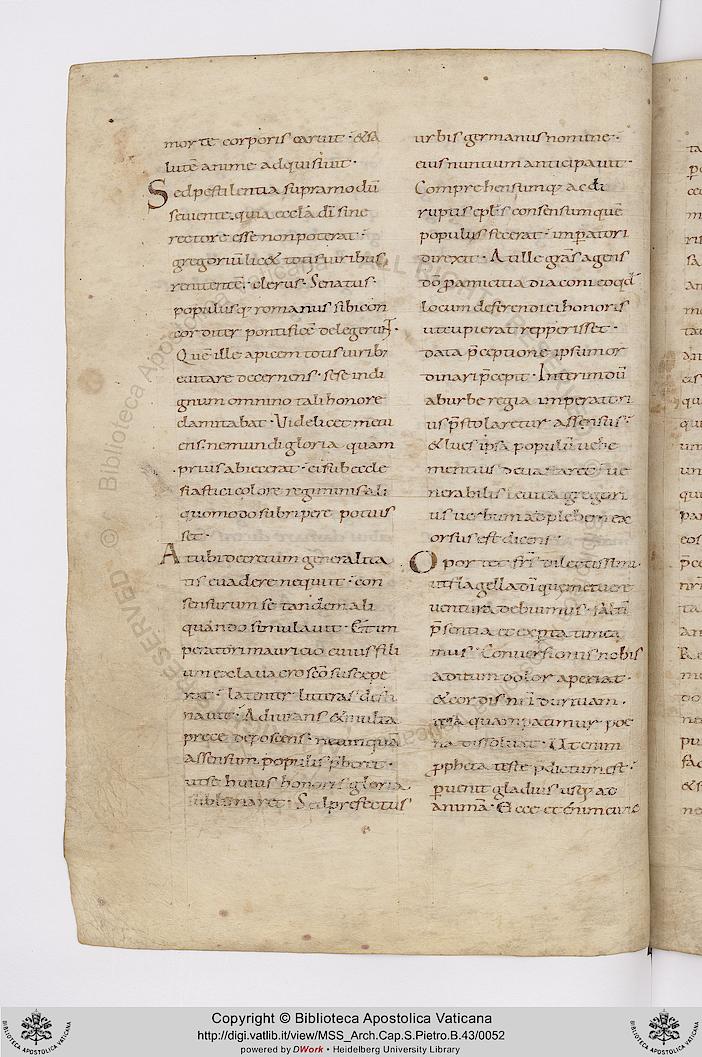 morte corporis caruit · &sa
lutē anime adquisiuit ·
Sed pestilentia supra modū
seuiente · quia eccła dī sine
rectore esse non poterat ·
gregoriū lic& totis uiribus
renitentē · clerus · Senatus ·
populusq; romanus sibi con
corditer pontificē delegerunt ·
Quē ille apicem totis uirib;
euitare decernens · sese indi
gnum omnino tali honore
clamitabat · Videlicet metu
ens · ne mundi gloria quam
prius abiecerat · ei sub eccle
siastici colore regiminis ali
quo modo subripere potuis
set ·
At ubi decretum generalita
tis euadere nequiit · con
sensurum se tandem ali
quando simulauit · Et im
peratori mauricio cuius fili
um ex lauacro sc̄o suscepe
rat · latenter litteras desti
nauit · Adiurans & multa
prece deposcens · ne umquā
assensum populis p̄ber&
ut se huius honoris gloria
sublimaret · Sed prefectus
urbis germanus nomine ·
eius nuntium anticipauit ·
Comprehensumq; ac di
ruptis epłis consensum quē
populus fecerat · imperatori
direxit · At ille grās agens
dō p amicitia diaconi eo qd̄
locum deferendi ei honoris
ut cupierat repperisset ·
data p̄ceptione ipsum or
dinari p̄cepit · Interim dū
ab urbe regia imperatori
us p̄stolaretur assensus ·
& lues ipsa populū uehe
mentius deuastaret · ue
nerabilis leuita gregori
us uerbum ad plebem ex
orsus est dicens ·
Oportet fr̄s dilectissimi ·
ut flagella dī que metuere
uentura debuimus · saltī
p̄sentia et expta timea
mus · Conuersionis nobis
aditum dolor aperiat ·
& cordis nr̄i duritiam ·
ipsa quam patimur poe
na dissoluat · Ut enim
propheta teste p̄dictum est ·
puenit gladius usq; ad
animā · Ecce etenim cunc